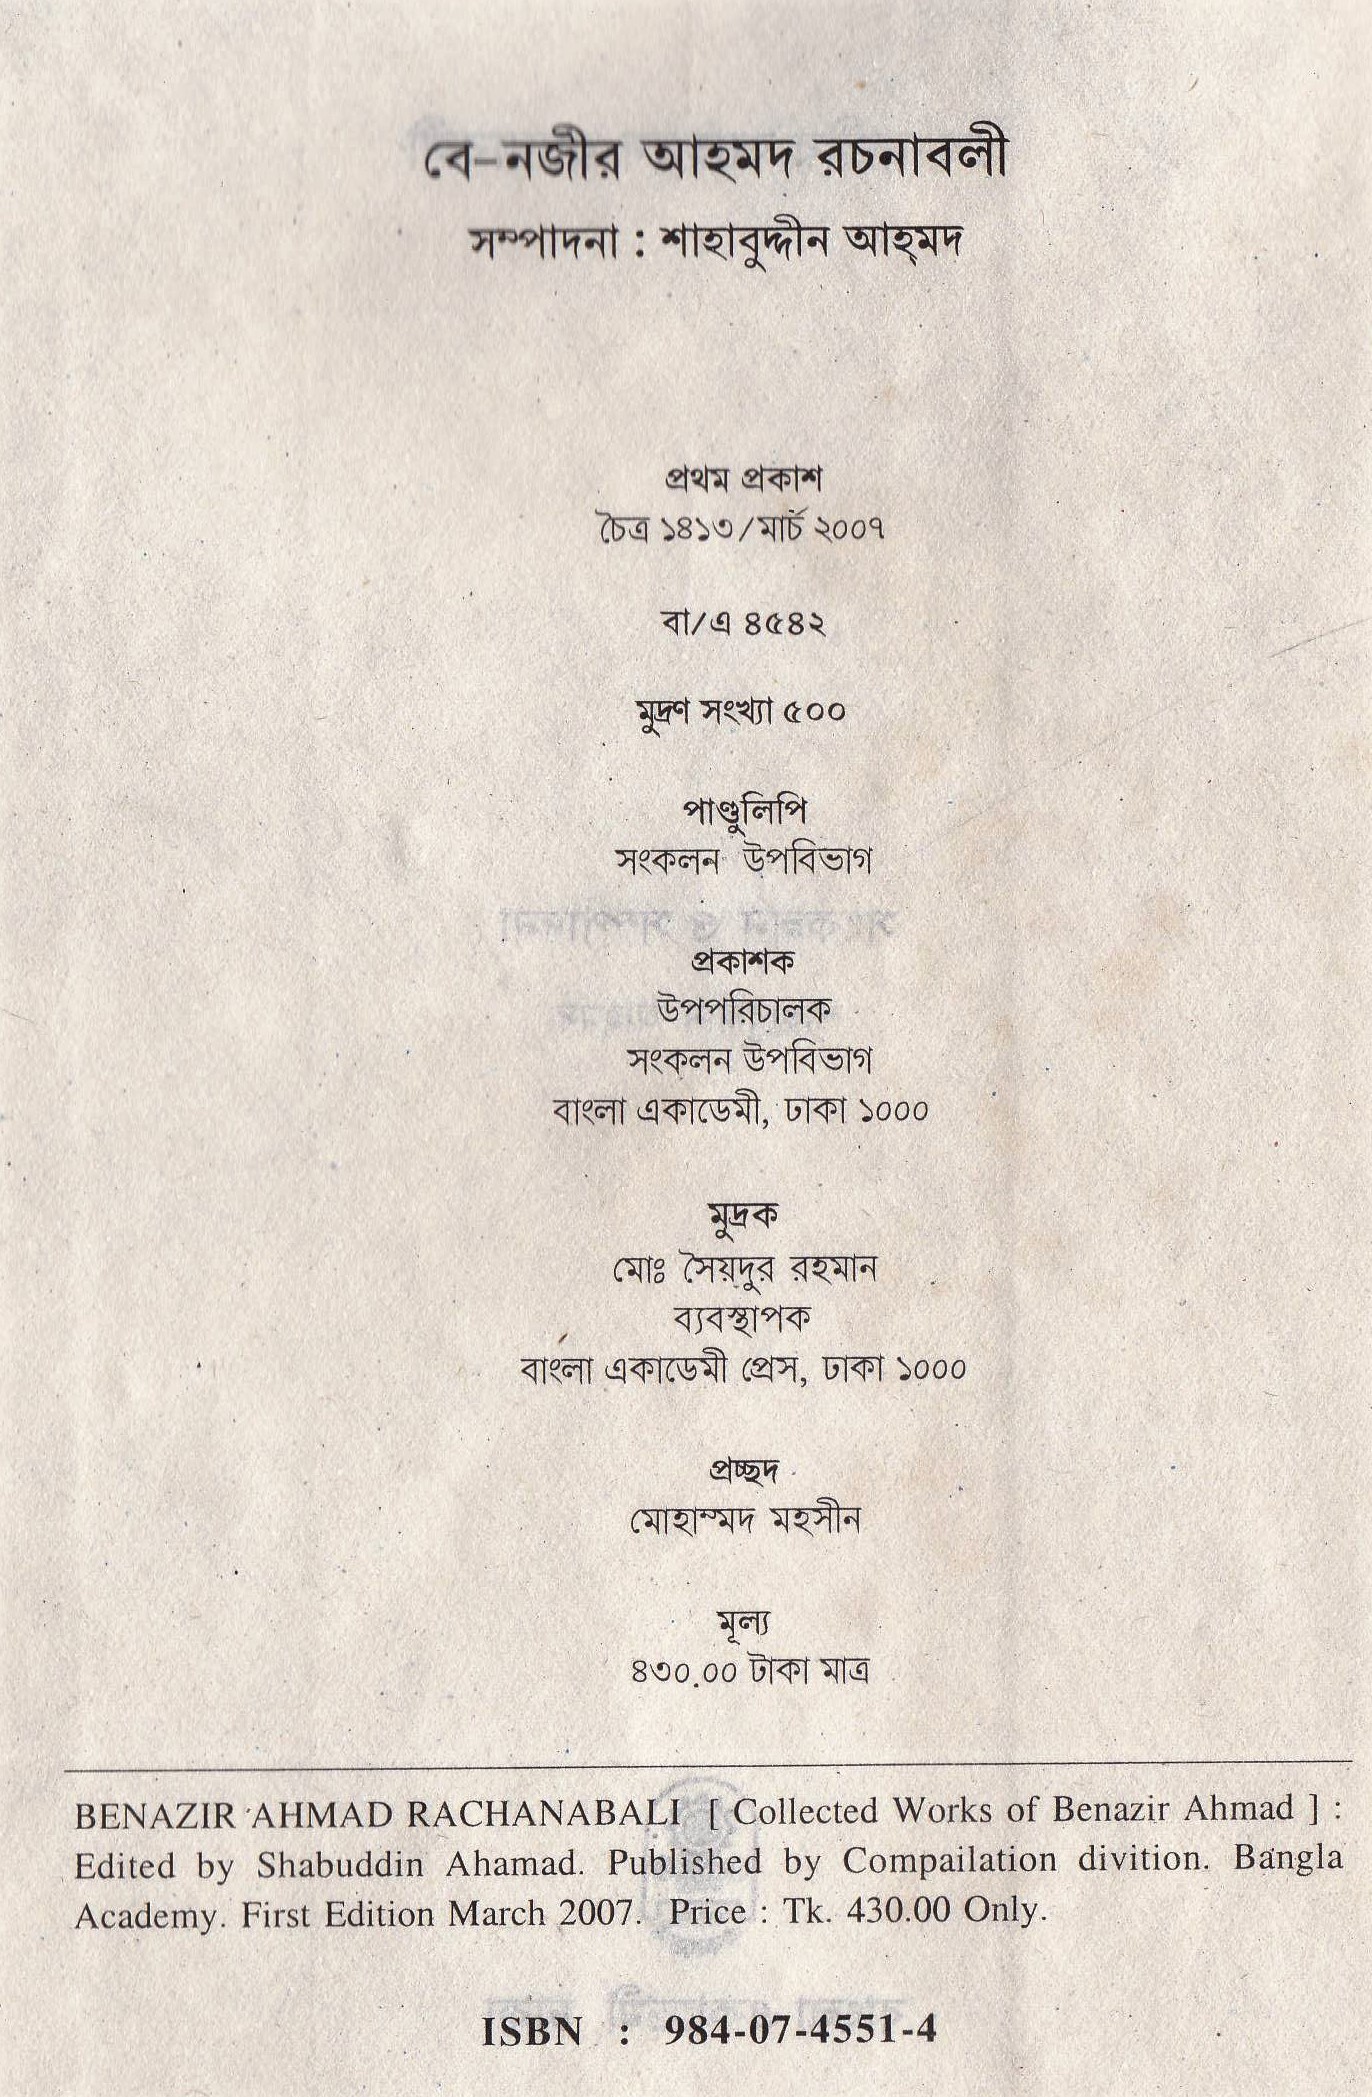 বে-নজীর আহমদ রচনাবলী
সম্পাদনা : শাহাবুদ্দীন আহ্‌মদ
প্রথম প্রকাশ
চৈত্র ১৪১৩/মার্চ ২০০৭
বা/এ ৪৫৪২
মুদ্রণ সংখ্যা ৫০০
পাণ্ডুলিপি
সংকলন উপবিভাগ
প্রকাশক
উপপরিচালক
সংকলন উপবিভাগ
বাংলা একাডেমী, ঢাকা ১০০০
মুদ্রক
মোঃ সৈয়দুর রহমান
ব্যবস্থাপক
বাংলা একাডেমী প্রেস, ঢাকা ১০০০
প্রচ্ছদ
মোহাম্মদ মহসীন
মূল্য
৪৩০.০০ টাকা মাত্র
BENAZIR AHMAD RACHANABALI [ Collected Works of Benazir Ahmad ] :
Edited by Shabuddin Ahamad. Published by Compailation divition. Bangla
Academy. First Edition March 2007. Price : Tk. 430.00 Only.
ISBN : 984-07-4551-4